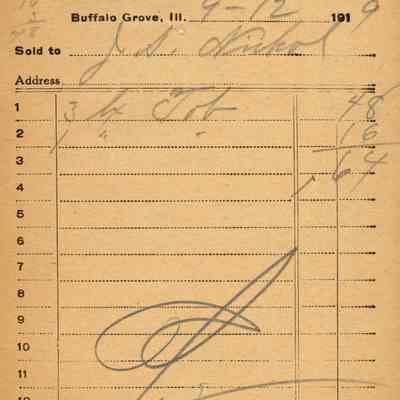 16
3
48
Buffalo Grove, Ill. 9-12 1919
Sold to J. S. Nichol
Address
1 3 lb Tob 48
2 1 " " 16
3 64
4
5
6
7
8
9
10
11
12